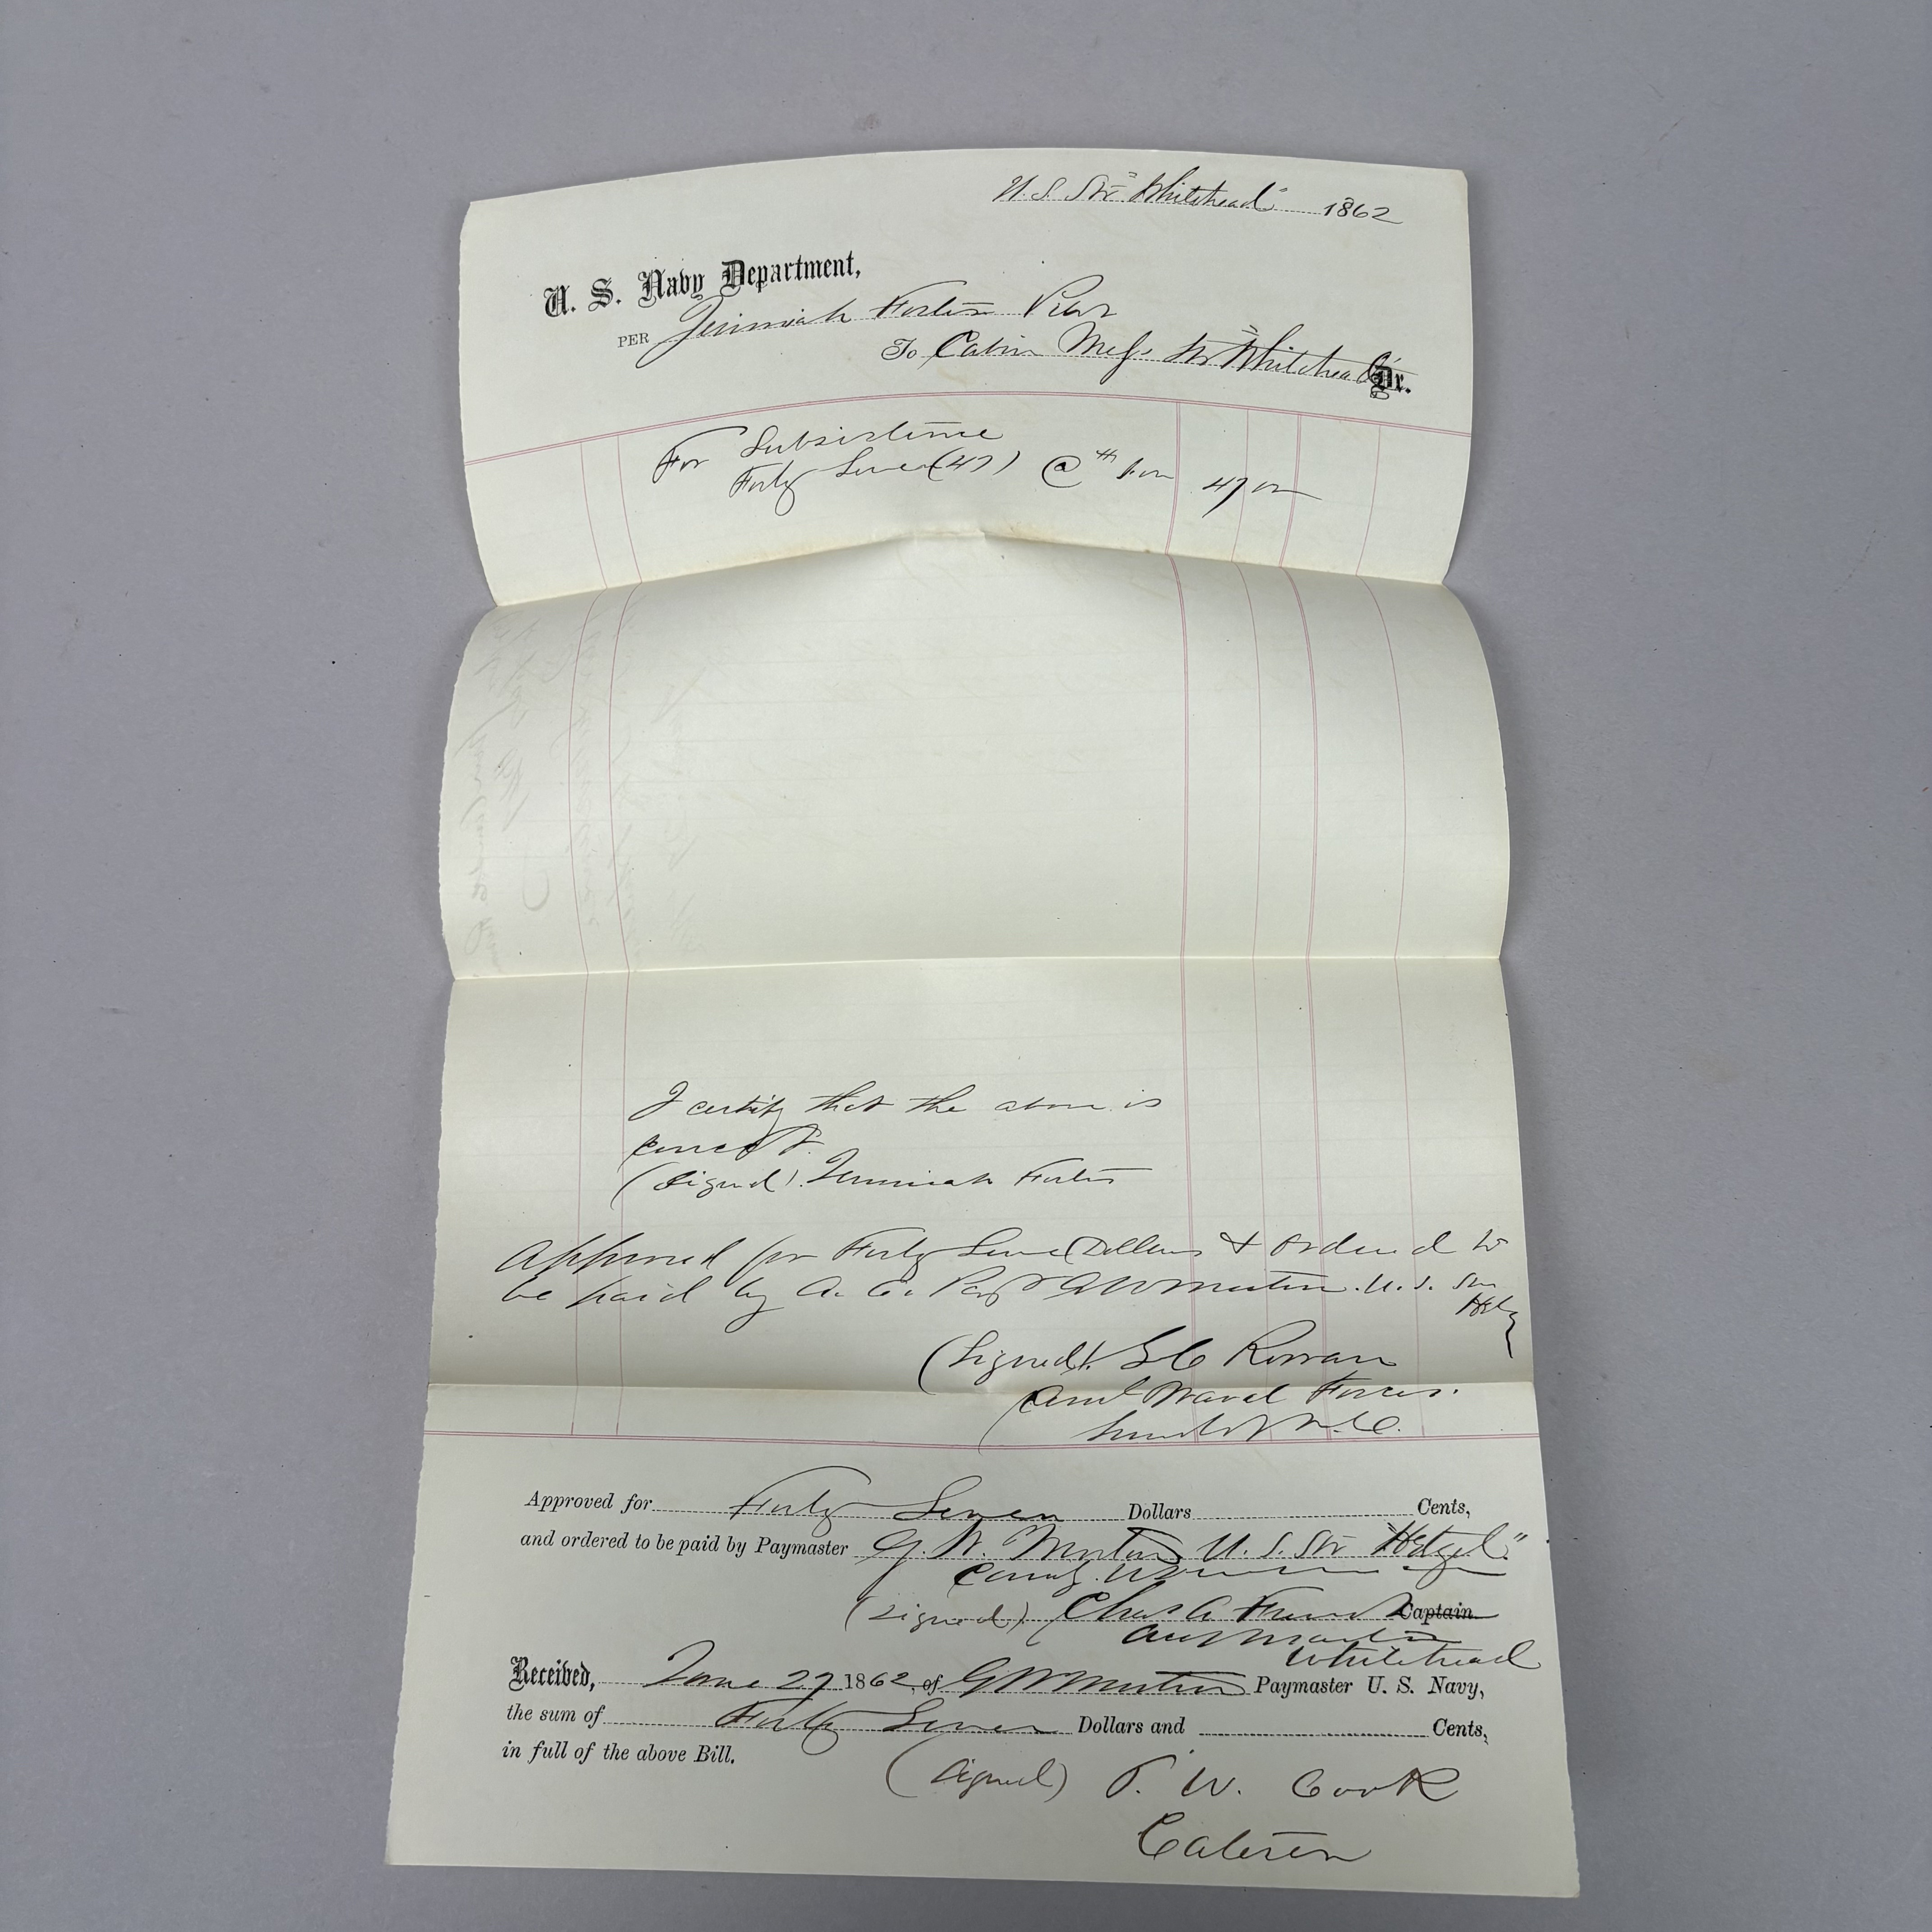 U. S. Str "Whitehead" 1862
U. S. Navy Department,
PER Jerimiah Foster Pilot
To Cabin Mess Str "Whitehead" Dr.
For Subsistence
Forty Seven (47) @ $1.00 47 00
I certify that the above is
correct.
(Signed). Jerimiah Foster
Approved for Forty Seven Dollars & ordered to
be paid by A. A. Pay G W Morton. U. S. Str
Hetzel
(Signed). S C Rowan
Comd Naval Forces.
N. C.
Approved for Forty Seven Dollars Cents,
and ordered to be paid by Paymaster G. W. Morton U. S. Str "Hetzel"
(Signed). Chas A French Captain
Act Master
Whitehead
Received, June 27 1862, of G W Morton Paymaster U. S. Navy,
the sum of Forty Seven Dollars and Cents,
in full of the above Bill.
(Signed) T. W. Cook
Caterer